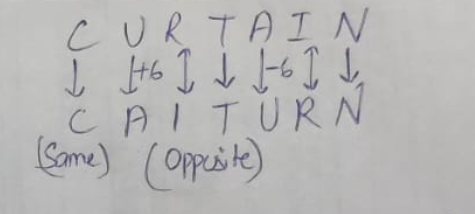 C U R T A I N
+6 -6
C A I T U R N
(Same) (Opposite)